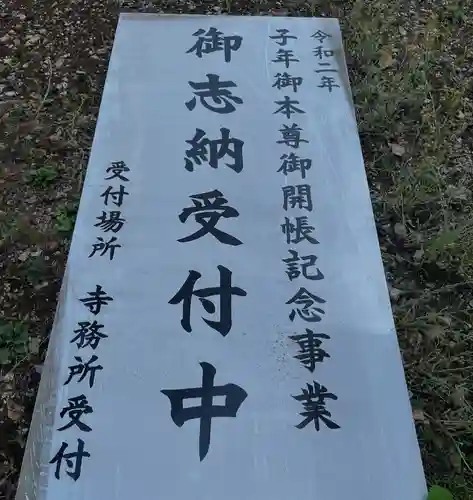 令和二年
子年御本尊御開帳記念事業
御志納受付中
受付場所 寺務所受付